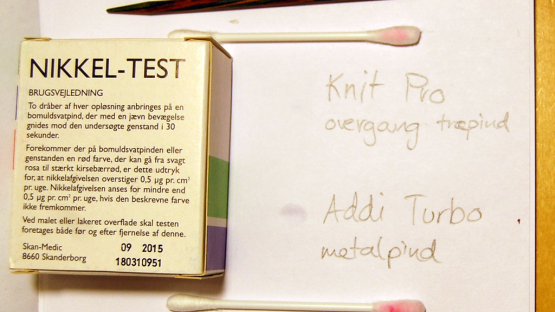 NIKKEL-TEST
BRUGSVEJLEDNING
To dråber af hver opløsning anbringes på en
bomuldsvatpind, der med en jævn bevægelse
gnides mod den undersøgte genstand i 30
sekunder.
Forekommer der på bomuldsvatpinden eller
genstanden en rød farve, der kan gå fra svagt
rosa til stærkt kirsebærrød, er dette udtryk
for, at nikkelafgivelsen overstiger 0,5 µg pr. cm²
pr. uge. Nikkelafgivelsen anses for mindre end
0,5 µg pr. cm² pr. uge, hvis den beskrevne farve
ikke fremkommer.
Ved malet eller lakeret overflade skal testen
foretages både før og efter fjernelse af denne.
Skan-Medic 09 2015
8660 Skanderborg 180310951
Knit Pro
overgang træpind
Addi Turbo
metalpind